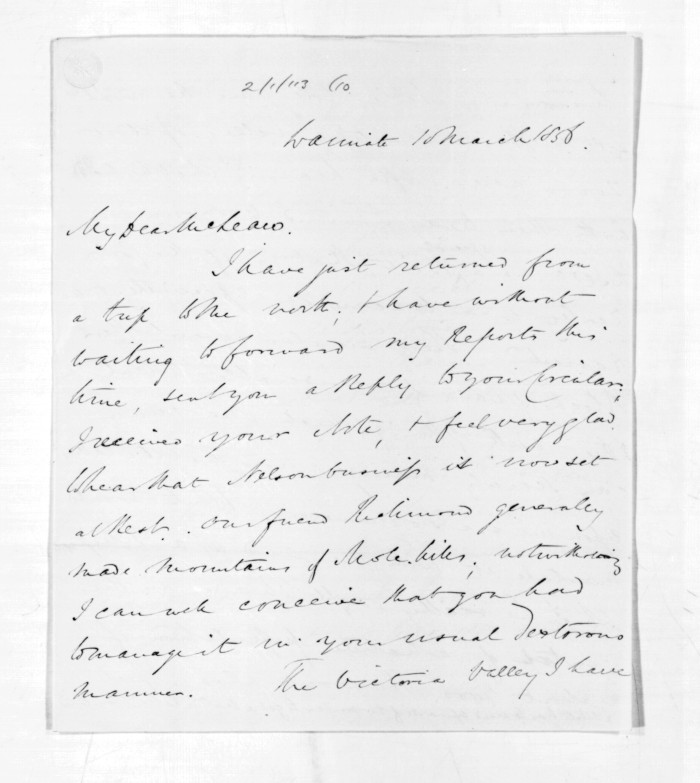 2/1/113 (10
Waimate 10 March 1856.
My Dear McLean.
I have just returned from
a trip to the north; & have without
waiting to forward my Reports this
time, sent you a Reply to your Circular;
I received your Note, & feel very glad
to hear that Nelson business is now set
at Rest. Our friend Richmond generally
made mountains of Mole hills; notwithstanding
I can well conceive that you had
to manage it in your usual Dextorous
manner. The Victoria Valley I have